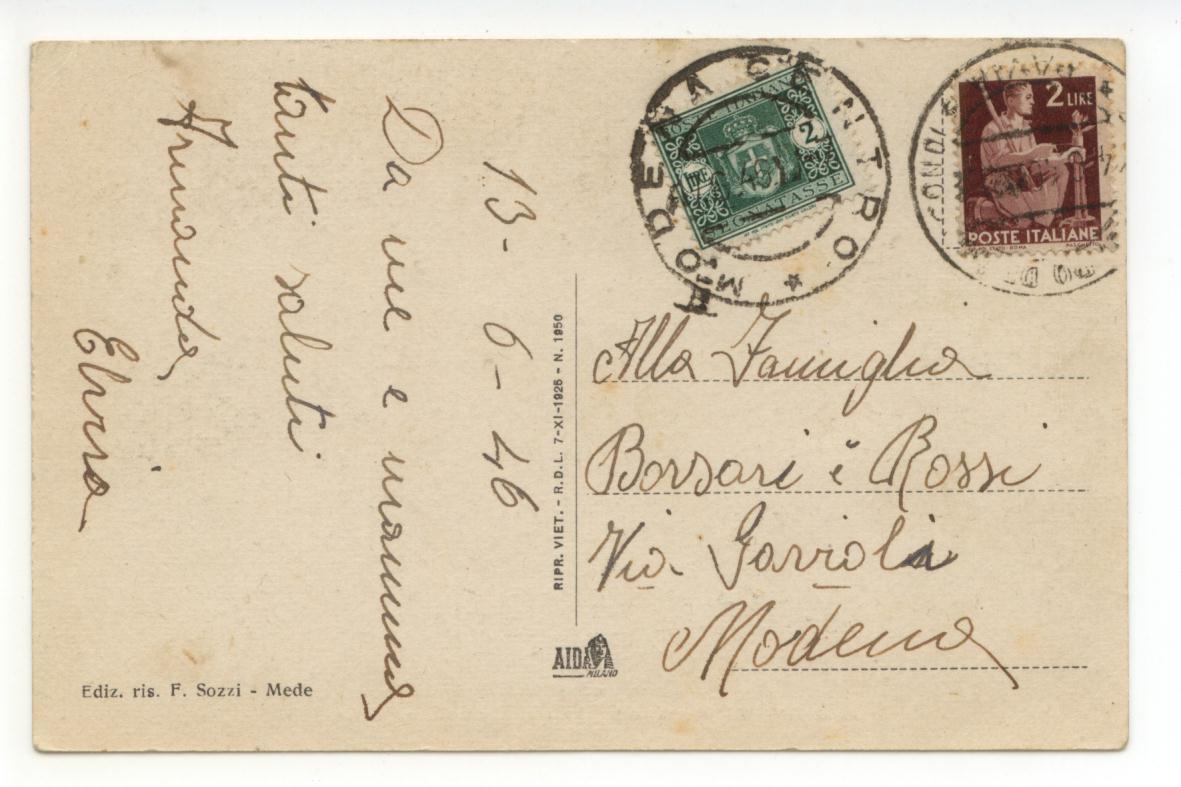 13-6-46
Da me e mamma
tanti saluti
Armanda
Elvia
Ediz. ris. F. Sozzi - Mede
RIPR. VIET. - R.D.L. 7-XI-1926 - N. 1950
AIDA
MILANO
MODENA CENTRO
POSTE ITALIANE
2
LIRE
SEGNATASSE
2 LIRE
POSTE ITALIANE
Alla Famiglia
Borsari e Rossi
Via
Modena